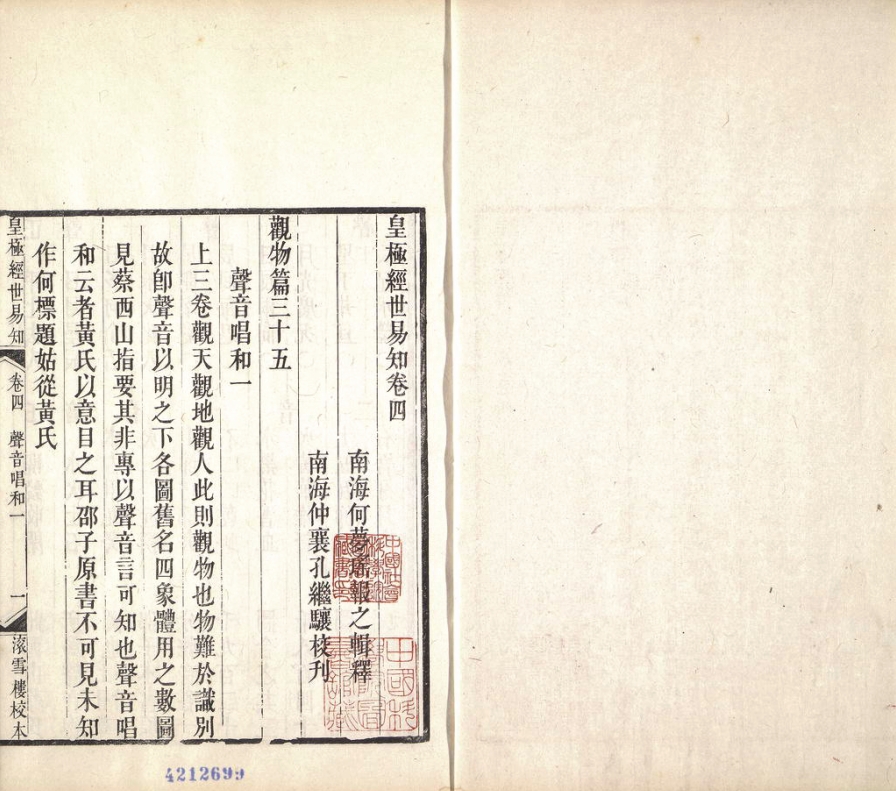 皇極經世易知卷四
南海何夢瑤報之輯釋
南海仲襄孔繼驤校刋
觀物篇三十五
聲音唱和一
上三卷觀天觀地觀人此則觀物也物難於識別
故卽聲音以明之下各圖舊名四象體用之數圖
見蔡西山指要其非專以聲音言可知也聲音唱
和云者黃氏以意目之耳邵子原書不可見未知
作何標題姑從黃氏
皇極經世易知
卷四
聲音唱和一
一
滾雪樓校本
4212699